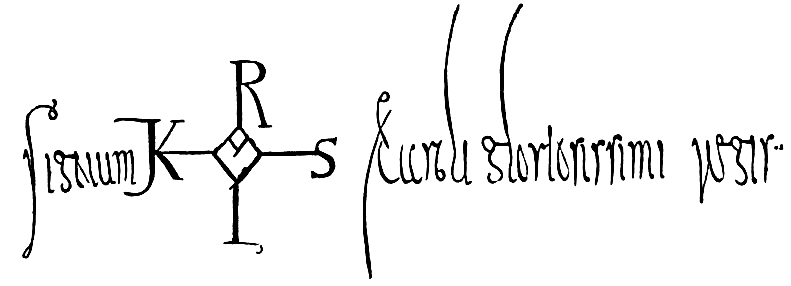 Signum KRLS Caroli gloriosissimi regis